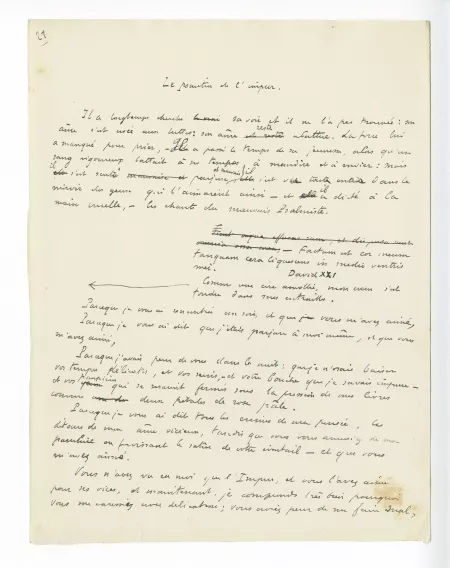 21
Le psautier de l'impur.
Il a longtemps cherché sa voie et il ne l'a pas trouvée : son
âme s'est usée aux luttes : son âme est restée abattue. La force lui
a manqué pour prier, - Il a passé le temps de sa jeunesse, alors qu'un
sang vigoureux battait à ses tempes, à maudire et à envier : mais
il s'est senti parjure, il s'est vu dans le
miroir des yeux qui l'aimaient ainsi - et il a dicté à la
main cruelle, - les chants du mauvais Psalmiste.
Factum est cor meum
tanquam cera liquescens in medio ventris
mei. David XXI
Comme une cire amollie, mon cœur s'est
fondu dans mes entrailles.
Parce que je vous ai rencontrée un soir, et que vous m'avez aimé,
Parce que je vous ai dit que j'étais parjure à moi-même, et que vous
m'avez aimé,
Parce que j'avais peur de vous dans la nuit : que je n'osais baiser
vos tempes délicates, et vos seins, et votre bouche que je savais impure -
et vos paupières qui se mouraient fermées sous la pression de mes lèvres
comme deux pétales de rose pâle.
Parce que je vous ai dit tous les crimes de ma pensée, les
de mon âme vicieuse, tandis que vous vous
en froissant le satin de votre - et que vous
m'avez aimé.
Vous n'avez vu en moi que l'Impur, et vous l'avez aimé
pour ses vices, et maintenant je comprends très bien pourquoi
vous me caressiez avec délicatesse ; vous aviez peur de ma